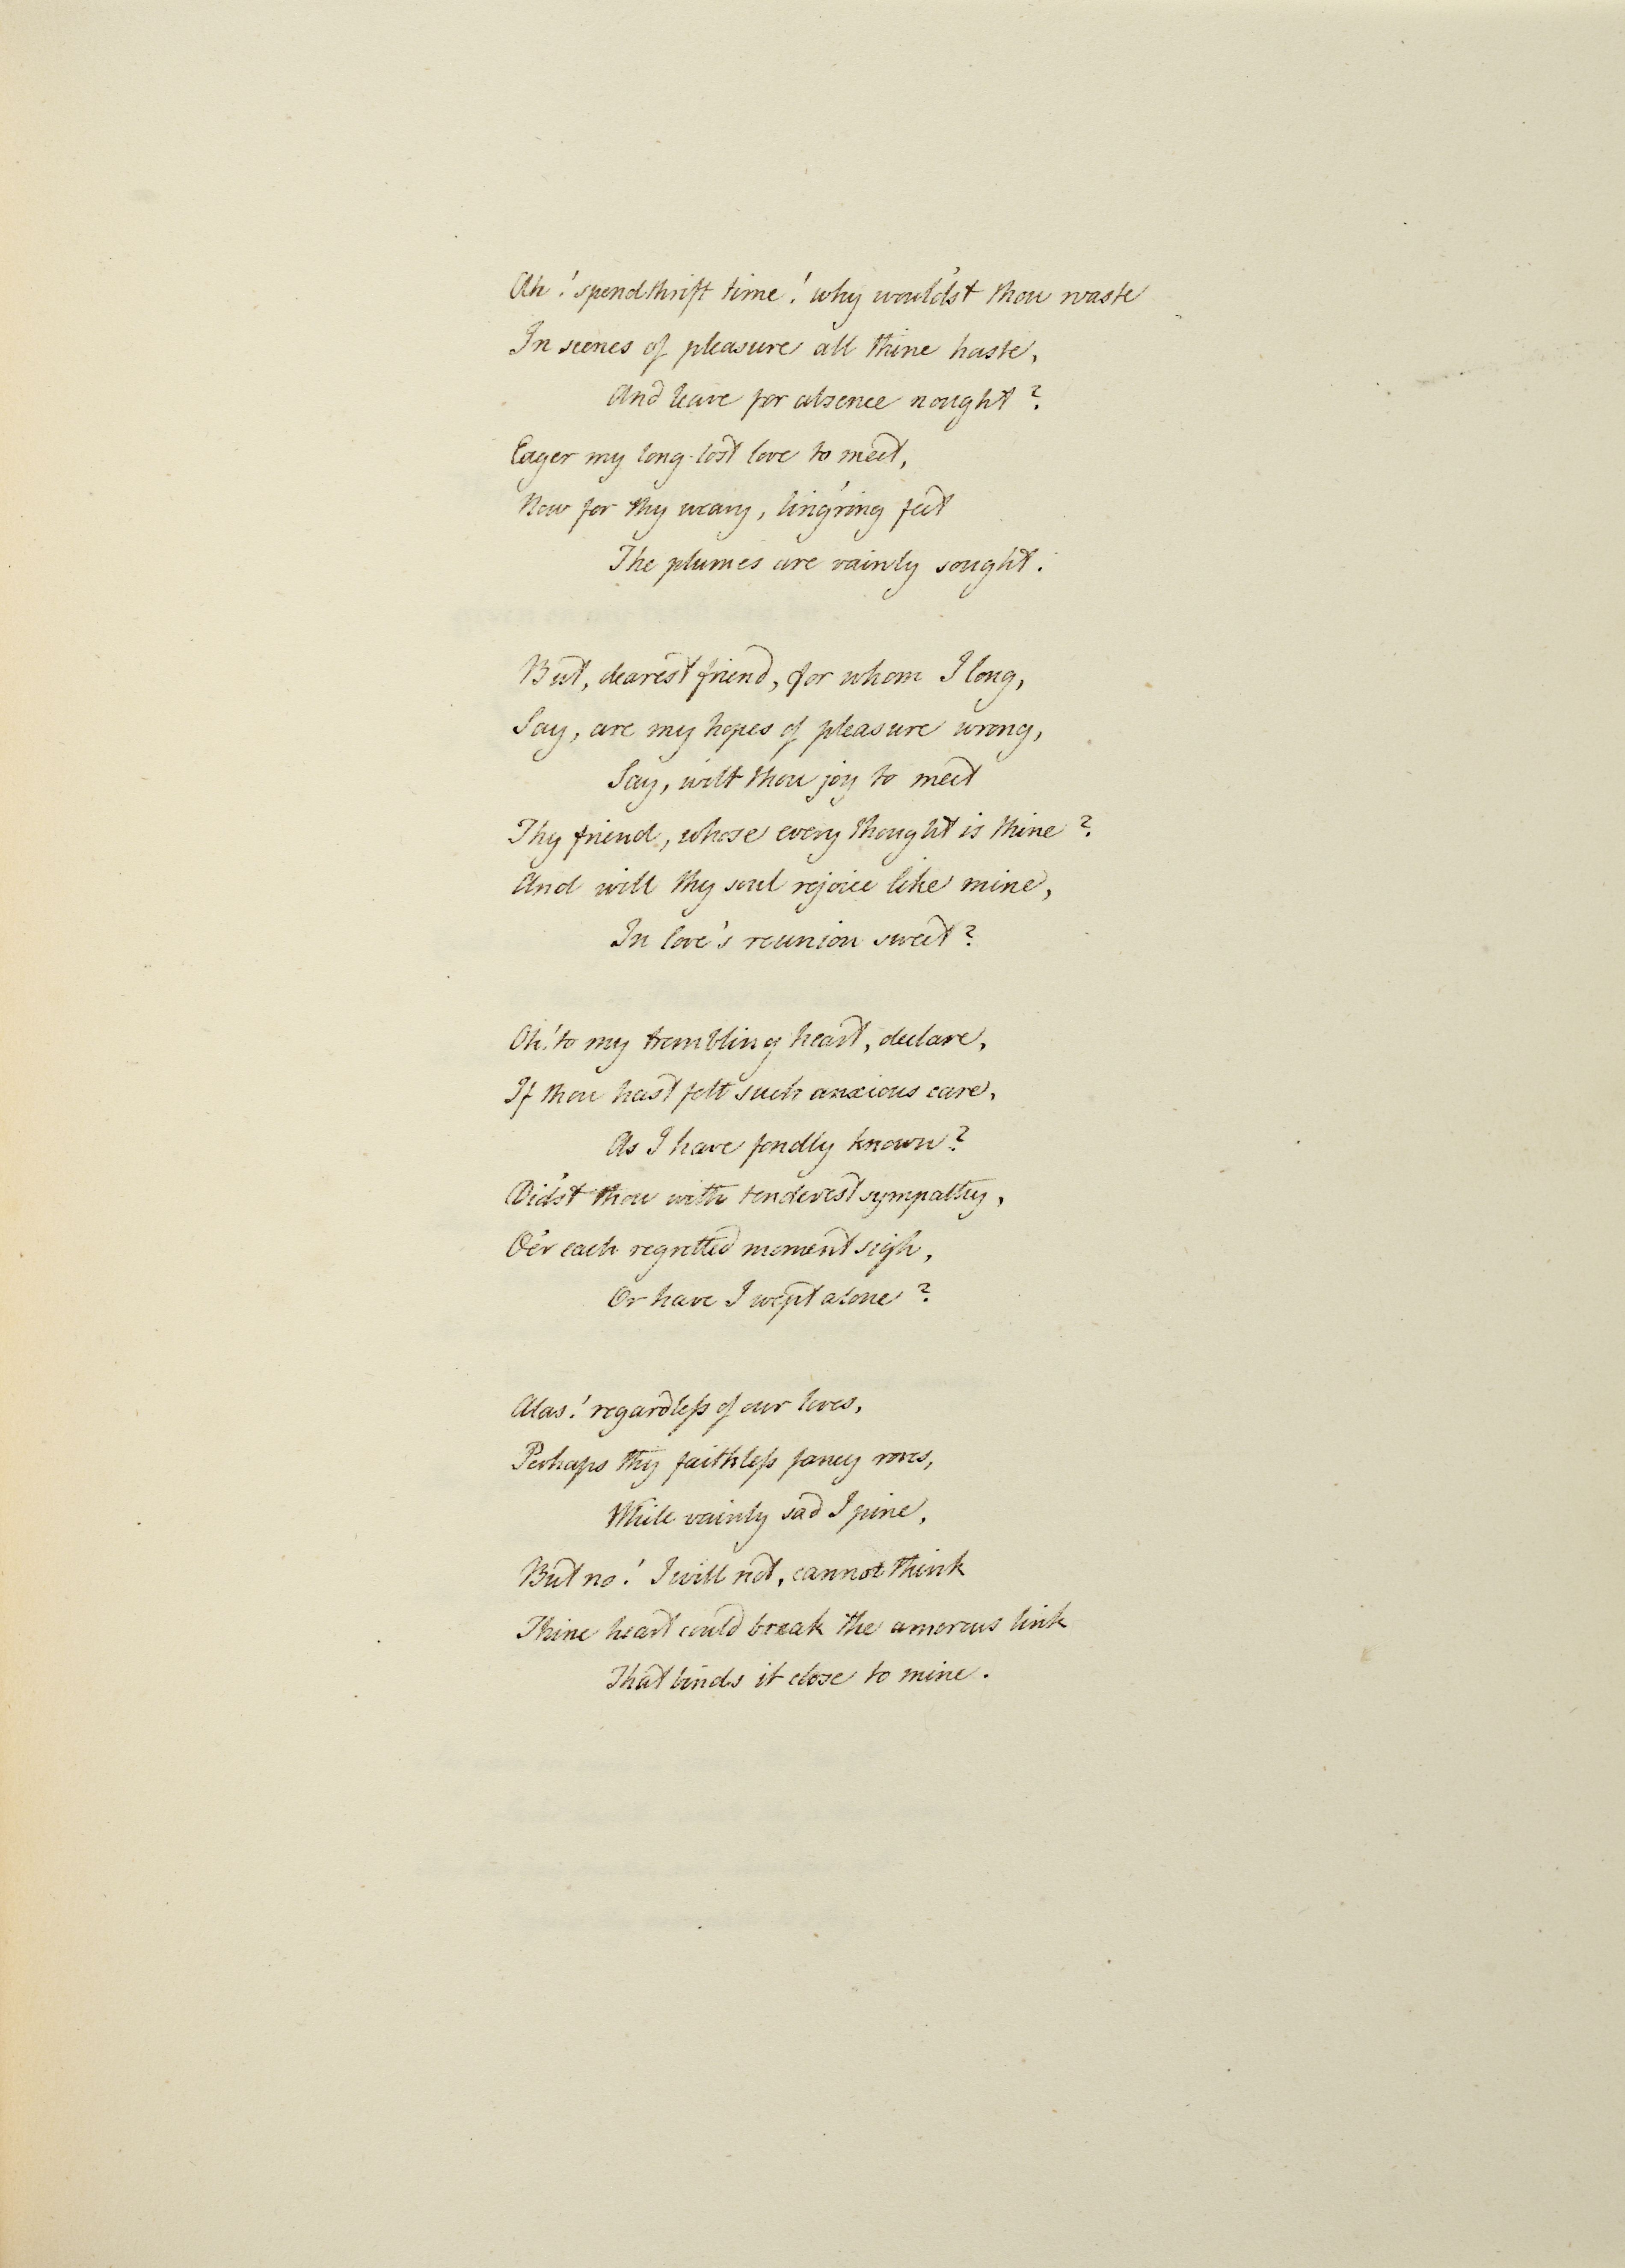 Ah! spendthrift time! why would'st thou waste
In scenes of pleasure all thine haste,
And leave for absence nought?
Eager my long-lost love to meet,
Now for thy weary, ling'ring feet
The plumes are vainly sought.
But, dearest friend, for whom I long,
Say, are my hopes of pleasure wrong,
Say, wilt thou joy to meet
Thy friend, whose every thought is thine?
And will thy soul rejoice like mine,
In love's reunion sweet?
Oh! to my trembling heart, declare,
If thou hast felt such anxious care,
As I have fondly known?
Did'st thou with tenderest sympathy,
O'er each regretted moment sigh,
Or have I wept alone?
Alas! regardleſs of our loves,
Perhaps thy faithleſs fancy roves,
While vainly sad I pine,
But no! I will not, cannot think
Thine heart could break the amorous link
That binds it close to mine.